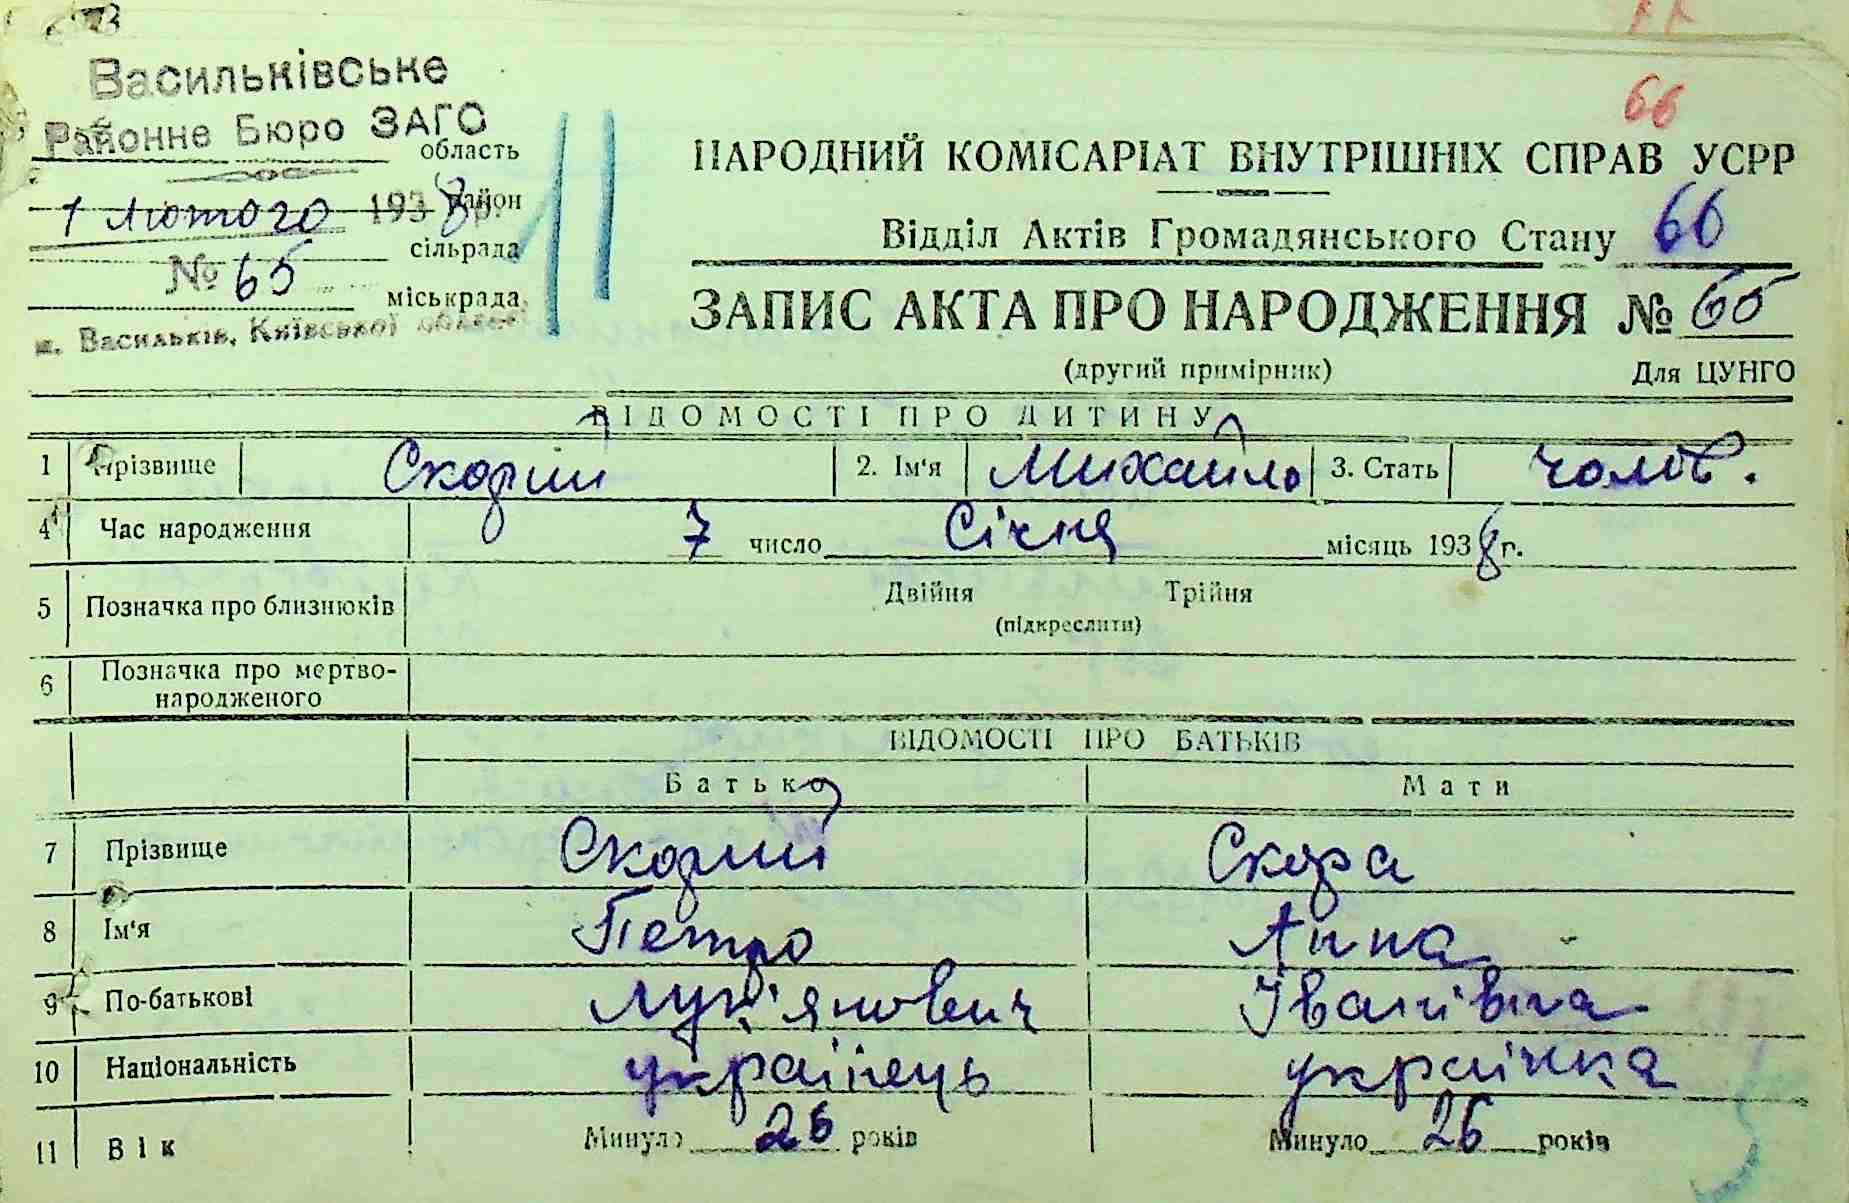 66
Васильківське
Районне Бюро ЗАГС
область
1 Лютого 1938 р.
район
сільрада
№ 65
міськрада
м. Васильків, Київської области
11
НАРОДНИЙ КОМІСАРІАТ ВНУТРІШНІХ СПРАВ УСРР
Відділ Актів Громадянського Стану 66
ЗАПИС АКТА ПРО НАРОДЖЕННЯ № 65
(другий примірник) Для ЦУНГО
ВІДОМОСТІ ПРО ДИТИНУ
1 Прізвище Скорий 2. Ім'я Михайло 3. Стать чолов.
4 Час народження 7 число Січня місяць 1938 г.
5 Позначка про близнюків Двійня Трійня
(підкреслити)
6 Позначка про мертво-
народженого
ВІДОМОСТІ ПРО БАТЬКІВ
Батько Мати
7 Прізвище Скорий Скора
8 Ім'я Петро Анна
9 По-батькові Лук'янович Іванівна
10 Національність українець українка
11 Вік Минуло 26 років Минуло 26 років